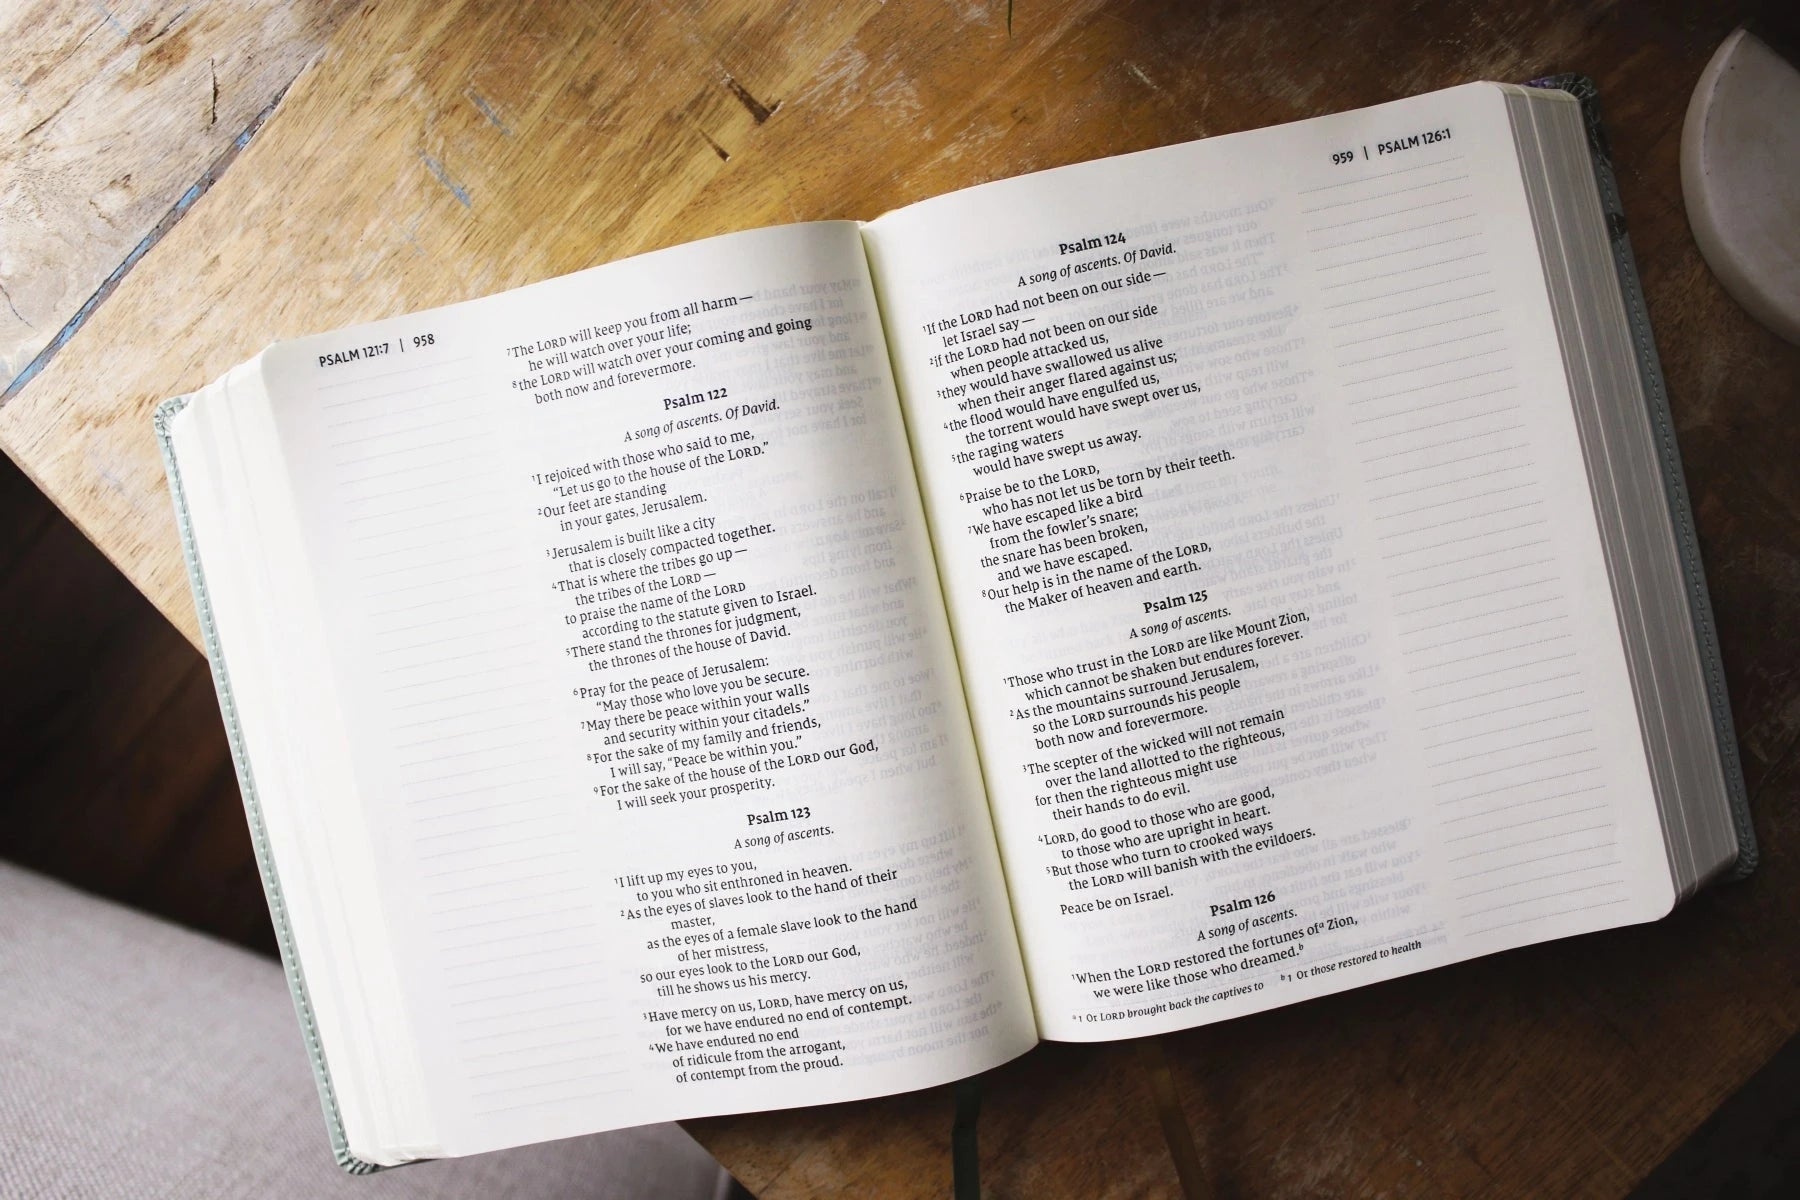 PSALM 121:7 | 958
⁷The LORD will keep you from all harm —
he will watch over your life;
⁸the LORD will watch over your coming and going
both now and forevermore.
Psalm 122
A song of ascents. Of David.
¹I rejoiced with those who said to me,
“Let us go to the house of the LORD.”
²Our feet are standing
in your gates, Jerusalem.
³Jerusalem is built like a city
that is closely compacted together.
⁴That is where the tribes go up —
the tribes of the LORD —
to praise the name of the LORD
according to the statute given to Israel.
⁵There stand the thrones for judgment,
the thrones of the house of David.
⁶Pray for the peace of Jerusalem:
“May those who love you be secure.
⁷May there be peace within your walls
and security within your citadels.”
⁸For the sake of my family and friends,
I will say, “Peace be within you.”
⁹For the sake of the house of the LORD our God,
I will seek your prosperity.
Psalm 123
A song of ascents.
¹I lift up my eyes to you,
to you who sit enthroned in heaven.
²As the eyes of slaves look to the hand of their
master,
as the eyes of a female slave look to the hand
of her mistress,
so our eyes look to the LORD our God,
till he shows us his mercy.
³Have mercy on us, LORD, have mercy on us,
for we have endured no end of contempt.
⁴We have endured no end
of ridicule from the arrogant,
of contempt from the proud.
959 | PSALM 126:1
Psalm 124
A song of ascents. Of David.
¹If the LORD had not been on our side —
let Israel say —
²if the LORD had not been on our side
when people attacked us,
³they would have swallowed us alive
when their anger flared against us;
⁴the flood would have engulfed us,
the torrent would have swept over us,
⁵the raging waters
would have swept us away.
⁶Praise be to the LORD,
who has not let us be torn by their teeth.
⁷We have escaped like a bird
from the fowler’s snare;
the snare has been broken,
and we have escaped.
⁸Our help is in the name of the LORD,
the Maker of heaven and earth.
Psalm 125
A song of ascents.
¹Those who trust in the LORD are like Mount Zion,
which cannot be shaken but endures forever.
²As the mountains surround Jerusalem,
so the LORD surrounds his people
both now and forevermore.
³The scepter of the wicked will not remain
over the land allotted to the righteous,
for then the righteous might use
their hands to do evil.
⁴LORD, do good to those who are good,
to those who are upright in heart.
⁵But those who turn to crooked ways
the LORD will banish with the evildoers.
Peace be on Israel.
Psalm 126
A song of ascents.
¹When the LORD restored the fortunes ofᵃ Zion,
we were like those who dreamed.ᵇ
ᵃ 1 Or LORD brought back the captives to ᵇ 1 Or those restored to health